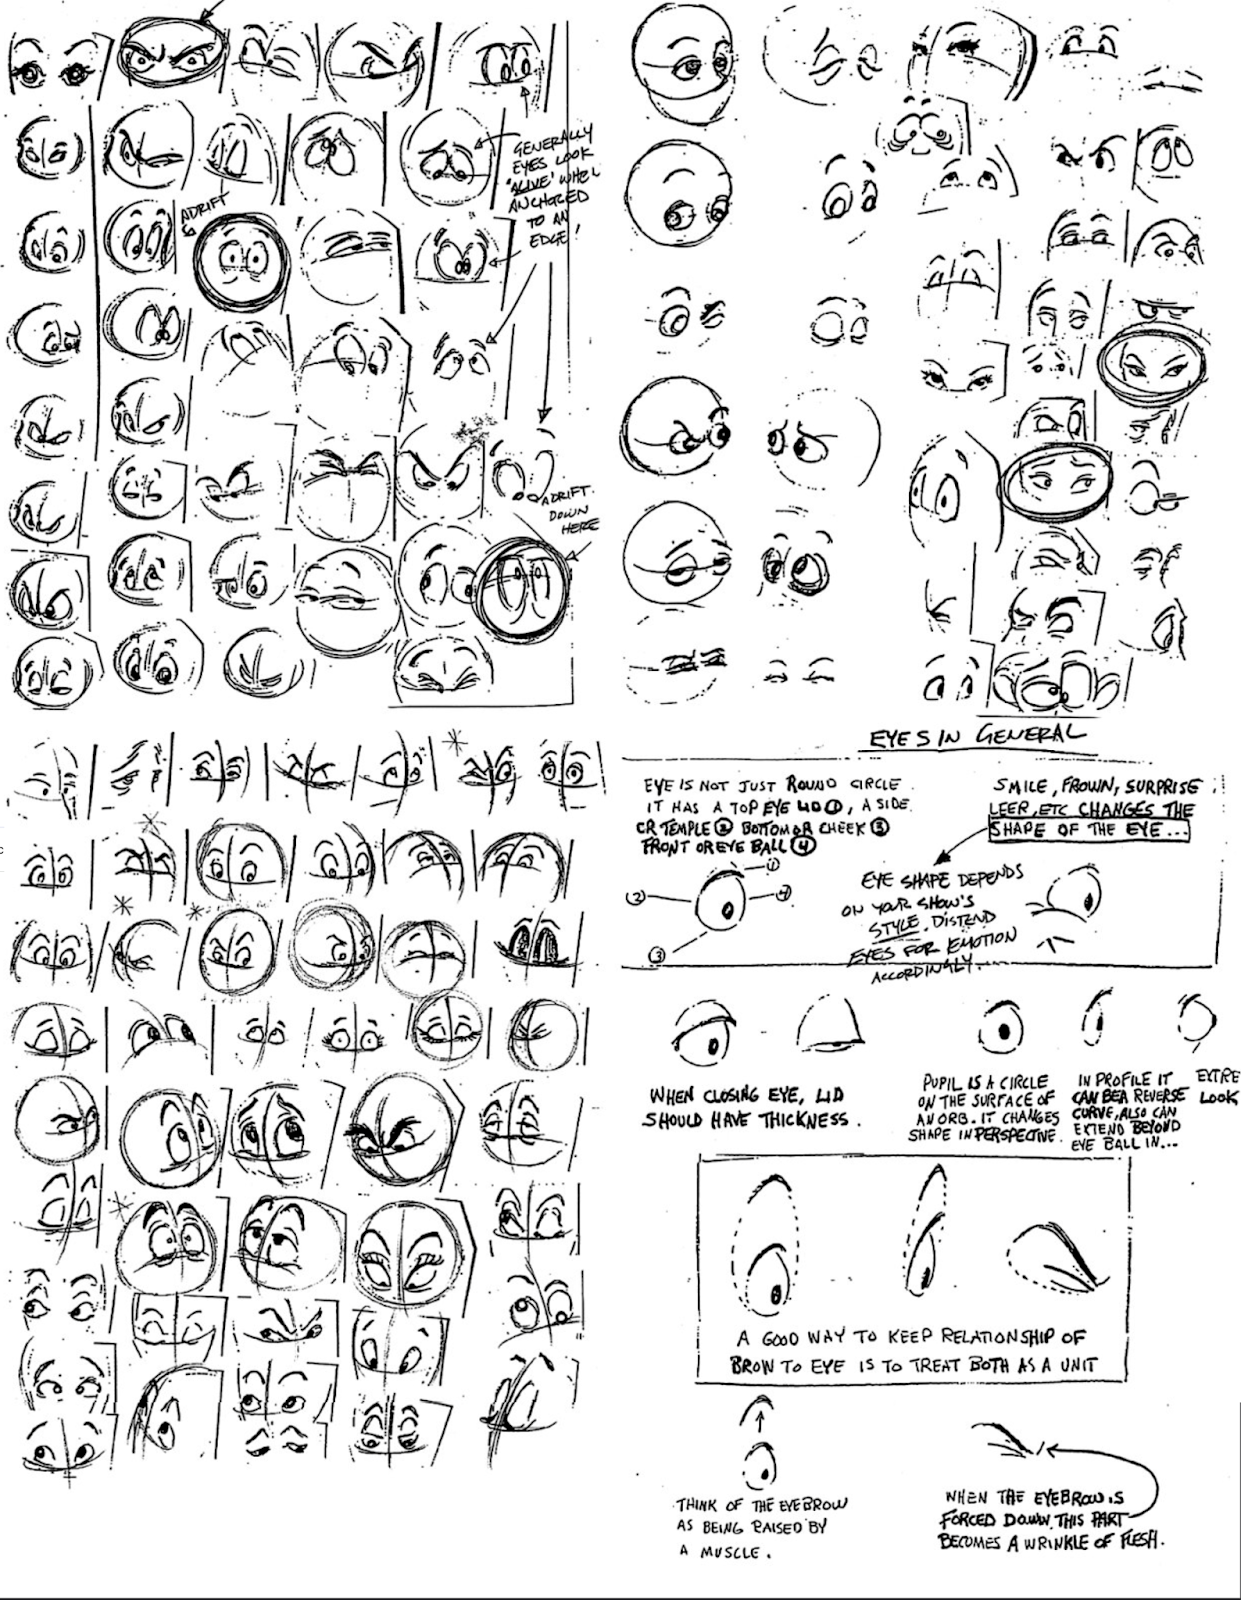 GENERALLY
EYES LOOK
'ALIVE' WHEN
ANCHORED
TO AN
EDGE!
ADRIFT
ADRIFT
DOWN
HERE
EYES IN GENERAL
EYE IS NOT JUST ROUND CIRCLE
IT HAS A TOP EYE LID ①, A SIDE
OR TEMPLE ② BOTTOM OR CHEEK ③
FRONT OR EYE BALL ④
SMILE, FROWN, SURPRISE
LEER, ETC CHANGES THE
SHAPE OF THE EYE...
①
②
④
③
EYE SHAPE DEPENDS
ON YOUR SHOW'S
STYLE. DISTEND
EYES FOR EMOTION
ACCORDINGLY...
WHEN CLOSING EYE, LID
SHOULD HAVE THICKNESS.
PUPIL IS A CIRCLE
ON THE SURFACE OF
AN ORB. IT CHANGES
SHAPE IN PERSPECTIVE.
IN PROFILE IT
CAN BE A REVERSE
CURVE, ALSO CAN
EXTEND BEYOND
EYE BALL IN...
EXTRE
LOOK
A GOOD WAY TO KEEP RELATIONSHIP OF
BROW TO EYE IS TO TREAT BOTH AS A UNIT
THINK OF THE EYEBROW
AS BEING RAISED BY
A MUSCLE.
WHEN THE EYEBROW IS
FORCED DOWN, THIS PART
BECOMES A WRINKLE OF FLESH.